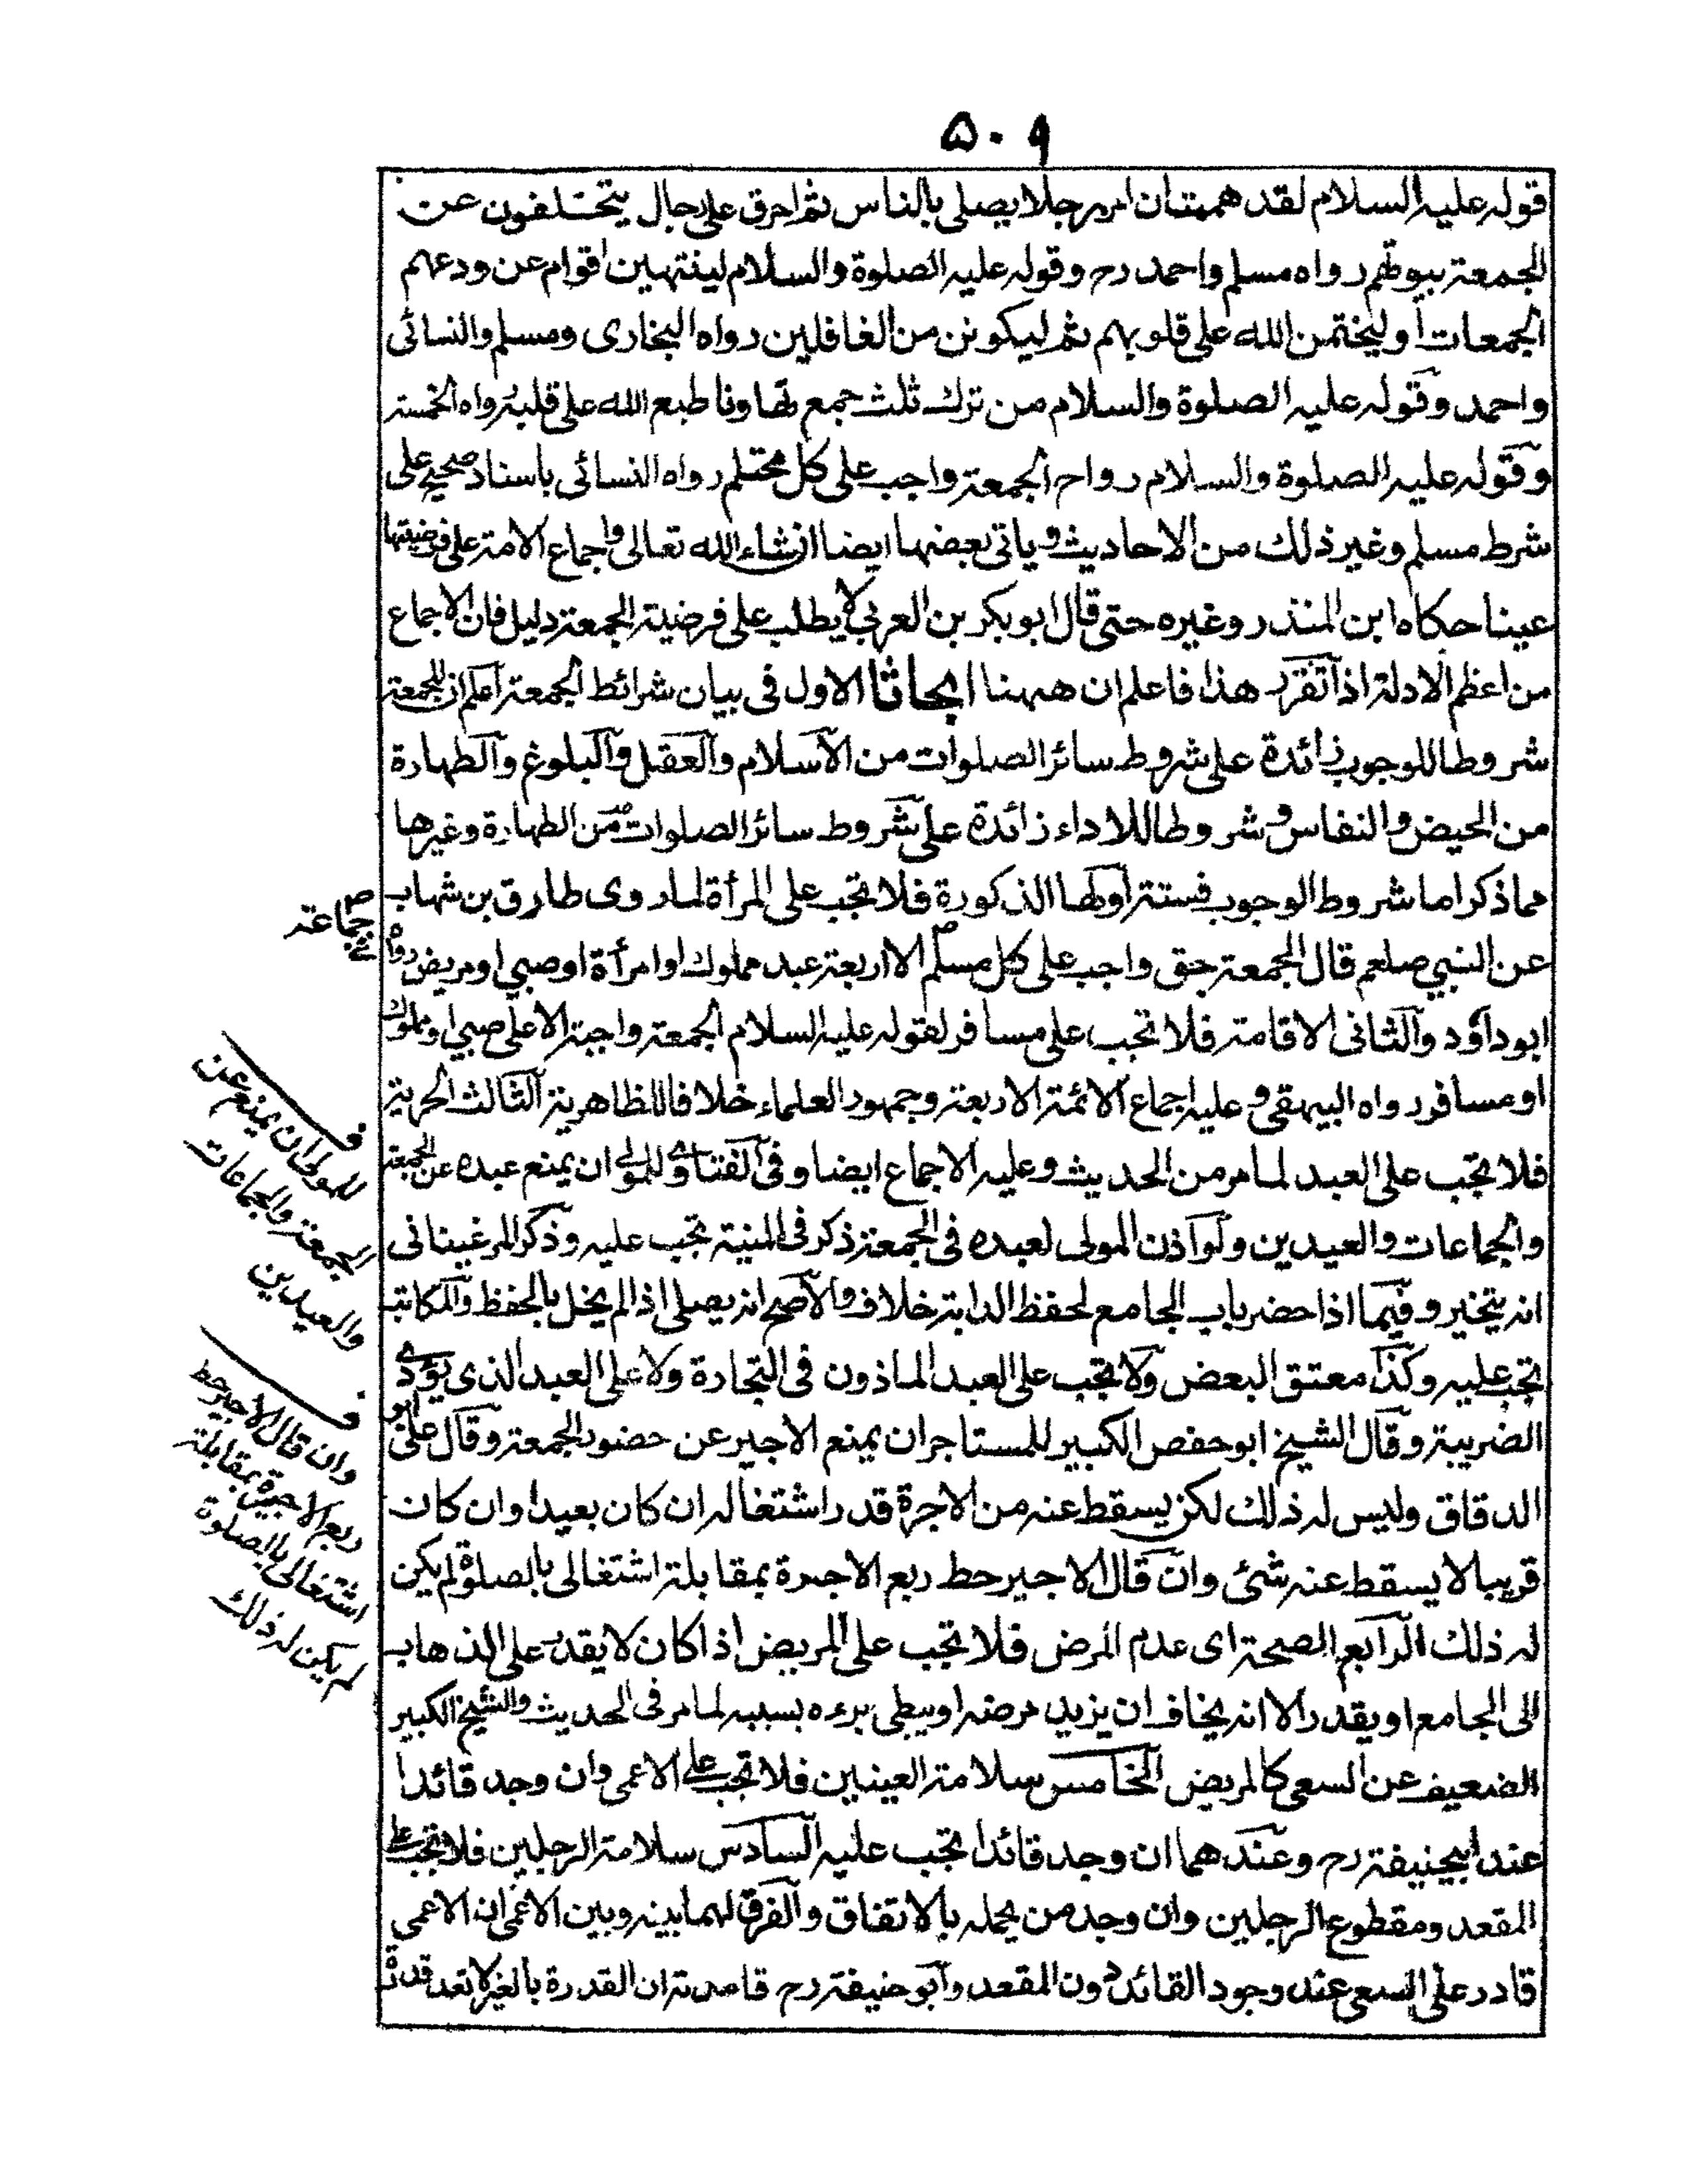 ۵۰۹
قوله عليه السلام لقد هممت ان امر رجلا يصلى بالناس ثم احرق على رجال يتخلفون عن
الجمعة بيوتهم رواه مسلم واحمد رح وقوله عليه الصلوة والسلام لينتهين اقوام عن ودعهم
الجمعات او ليختمن الله على قلوبهم ثم ليكونن من الغافلين رواه البخارى ومسلم والنسائى
واحمد وقوله عليه الصلوة والسلام من ترك ثلث جمع تهاونا طبع الله على قلبه رواه الخمسة
وقوله عليه الصلوة والسلام رواح الجمعة واجب على كل محتلم رواه النسائى باسناد صحيح على
شرط مسلم وغير ذلك من الاحاديث وياتى بعضها ايضا انشاء الله تعالى واجماع الامة على فرضيتها
عينا حكاه ابن المنذر وغيره حتى قال ابوبكر بن العربي لا يطلب على فرضية الجمعة دليل فان الاجماع
من اعظم الادلة اذا تقرر هذا فاعلم ان ههنا ابحاثا الاول فى بيان شرائط الجمعة اعلم ان للجمعة
شروطا للوجوب زائدة على شروط سائر الصلوات من الاسلام والعقل والبلوغ والطهارة
من الحيض والنفاس وشروطا للاداء زائدة على شروط سائر الصلوات من الطهارة وغيرها
مما ذكر اما شروط الوجوب فستة اولها الذكورة فلا تجب على المرأة لما روى طارق بن شهاب
عن النبي صلعم قال الجمعة حق واجب على كل مسلم الا اربعة عبد مملوك او امرأة او صبي او مريض رواه
ابو داؤد والثانى الاقامة فلا تجب على مسافر لقوله عليه السلام الجمعة واجبة الا على صبي او مملوك
او مسافر رواه البيهقى وعليه اجماع الائمة الاربعة وجمهور العلماء خلافا للظاهرية الثالث الحرية
فلا تجب على العبد لما مر من الحديث وعليه الاجماع ايضا وفى الفتاوى وللمولى ان يمنع عبده عن الجمعة
والجماعات والعيدين ولو اذن المولى لعبده فى الجمعة ذكر فى المنية تجب عليه وذكر المرغينانى
انه يتخير وفيما اذا حضر باب الجامع لحفظ الدابة خلاف والاصح انه يصلى اذا لم يخل بالحفظ والمكاتب
تجب عليه وكذا معتق البعض ولا تجب على العبد الماذون فى التجارة ولا على العبد الذى يؤدى
الضريبة وقال الشيخ ابو حفص الكبير للمستاجر ان يمنع الاجير عن حضور الجمعة وقال ابو على
الدقاق وليس له ذلك لكن يسقط عنه من الاجرة قدر اشتغاله ان كان بعيدا وان كان
قريبا لا يسقط عنه شئ وان قال الاجير حط ربع الاجرة بمقابلة اشتغالى بالصلوة لم يكن
له ذلك الرابع الصحة اى عدم المرض فلا تجب على المريض اذا كان لا يقدر على الذهاب
الى الجامع او يقدر الا انه يخاف ان يزيد مرضه او يبطى برءه بسببه لما مر فى الحديث والشيخ الكبير
الضعيف عن السعى كالمريض الخامس سلامة العينين فلا تجب على الاعمى وان وجد قائدا
عند ابيحنيفة رح وعندهما ان وجد قائدا تجب عليه السادس سلامة الرجلين فلا تجب على
المقعد ومقطوع الرجلين وان وجد من يحمله بالاتفاق والفرق لهما بينه وبين الاعمى ان الاعمى
قادر على السعى عند وجود القائد دون المقعد وابو حنيفة رح قاعدته ان القدرة بالغير لا تعد قدرة
فى جماعة
ف
للمولى ان يمنع عن
الجمعة والجماعات
والعيدين
ف
وان قال الاجير حط
ربع الاجرة بمقابلة
اشتغالى بالصلوة
لم يكن له ذلك